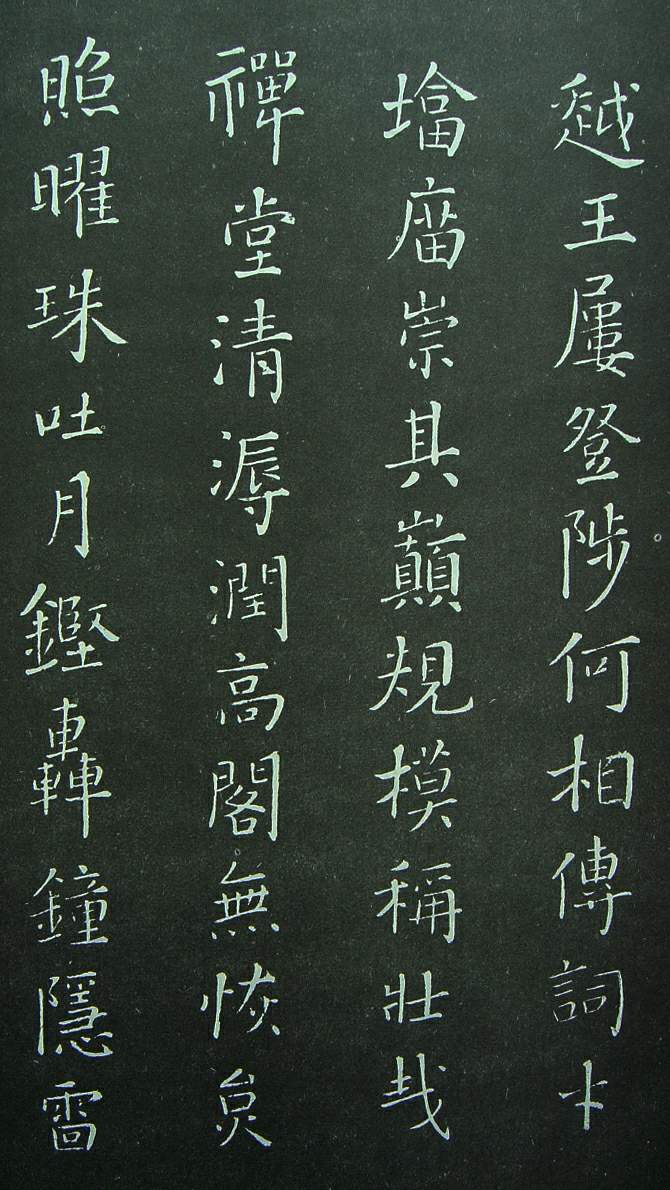 越王屢登陟何相傳詞才
墖庿崇其巔䂓模稱壯哉
禪堂清溽潤高閣無恢炱
照曜珠吐月鏗轟鐘隱雷